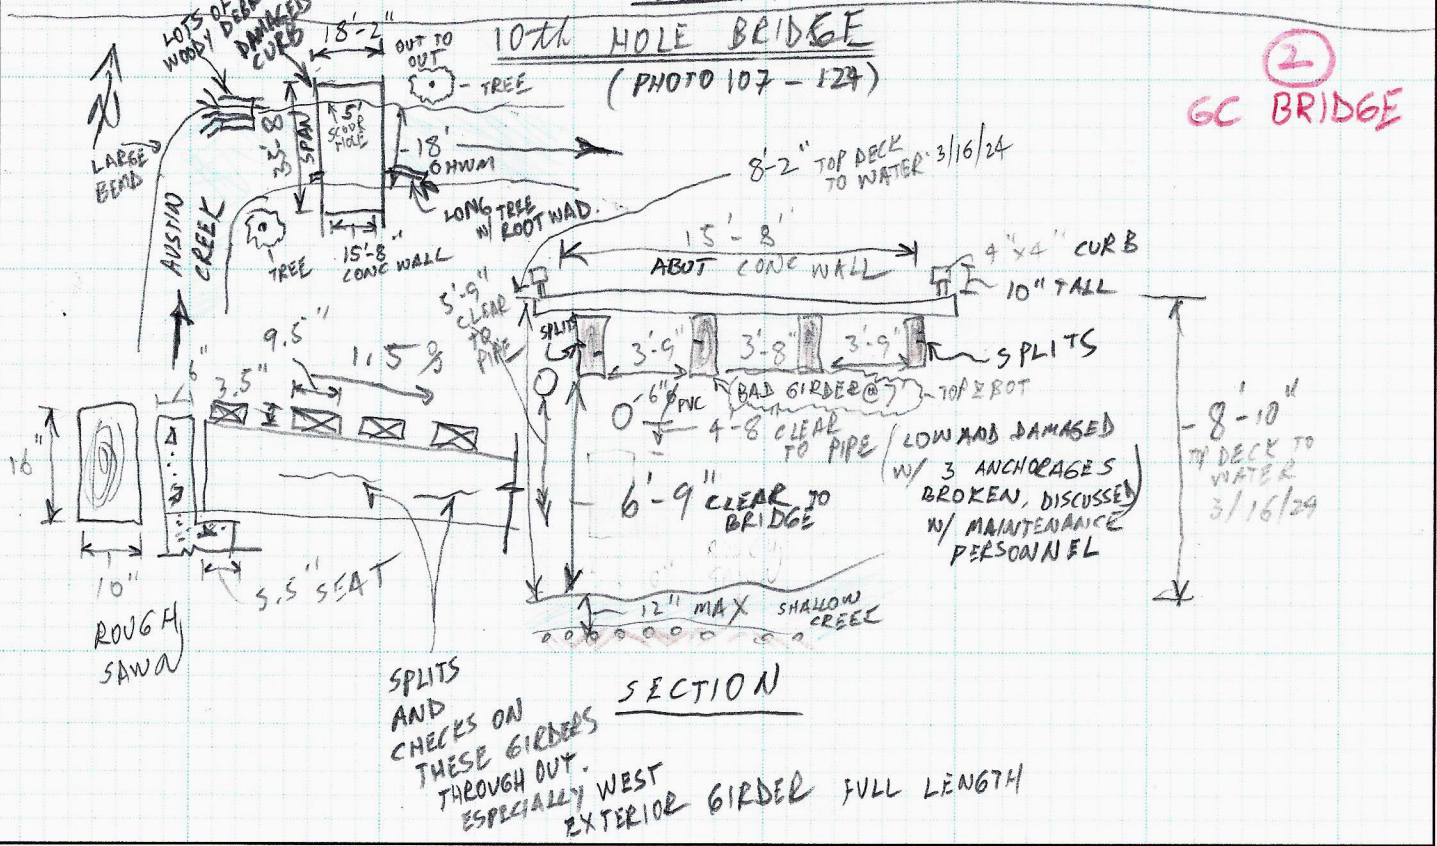 10th HOLE BRIDGE
(PHOTO 107 - 127)
2
GC BRIDGE
LOTS OF
WOODY DEBR
DAMAGED
CURB
18'-2"
OUT TO
OUT
TREE
N
LARGE
BEND
33'-8
SPAN
5'
SCOUR
HOLE
18'
OHWM
LONG TREE
W/ ROOT WAD
AUSTIN
CREEK
TREE
15'-8"
CONC WALL
8'-2" TOP DECK
TO WATER 3/16/24
15'-8"
ABUT CONC WALL
4"x4" CURB
10" TALL
5'-9"
CLEAR
TO
PIPE
SPLIT
3'-9"
3'-8"
3'-9"
SPLITS
6"ø
PVC
BAD GIRDER @
TOP & BOT
4'-8 CLEAR
TO PIPE
(LOW AND DAMAGED
W/ 3 ANCHORAGES
BROKEN, DISCUSSED)
W/ MAINTENANCE
PERSONNEL
6'-9" CLEAR TO
BRIDGE
8'-10"
TOP DECK TO
WATER
3/16/24
12" MAX
SHALLOW
CREEK
SECTION
9.5"
1.5%
6"
3.5"
16"
10"
5.5" SEAT
ROUGH
SAWN
SPLITS
AND
CHECKS ON
THESE GIRDERS
THROUGH OUT.
ESPECIALLY WEST
EXTERIOR GIRDER FULL LENGTH